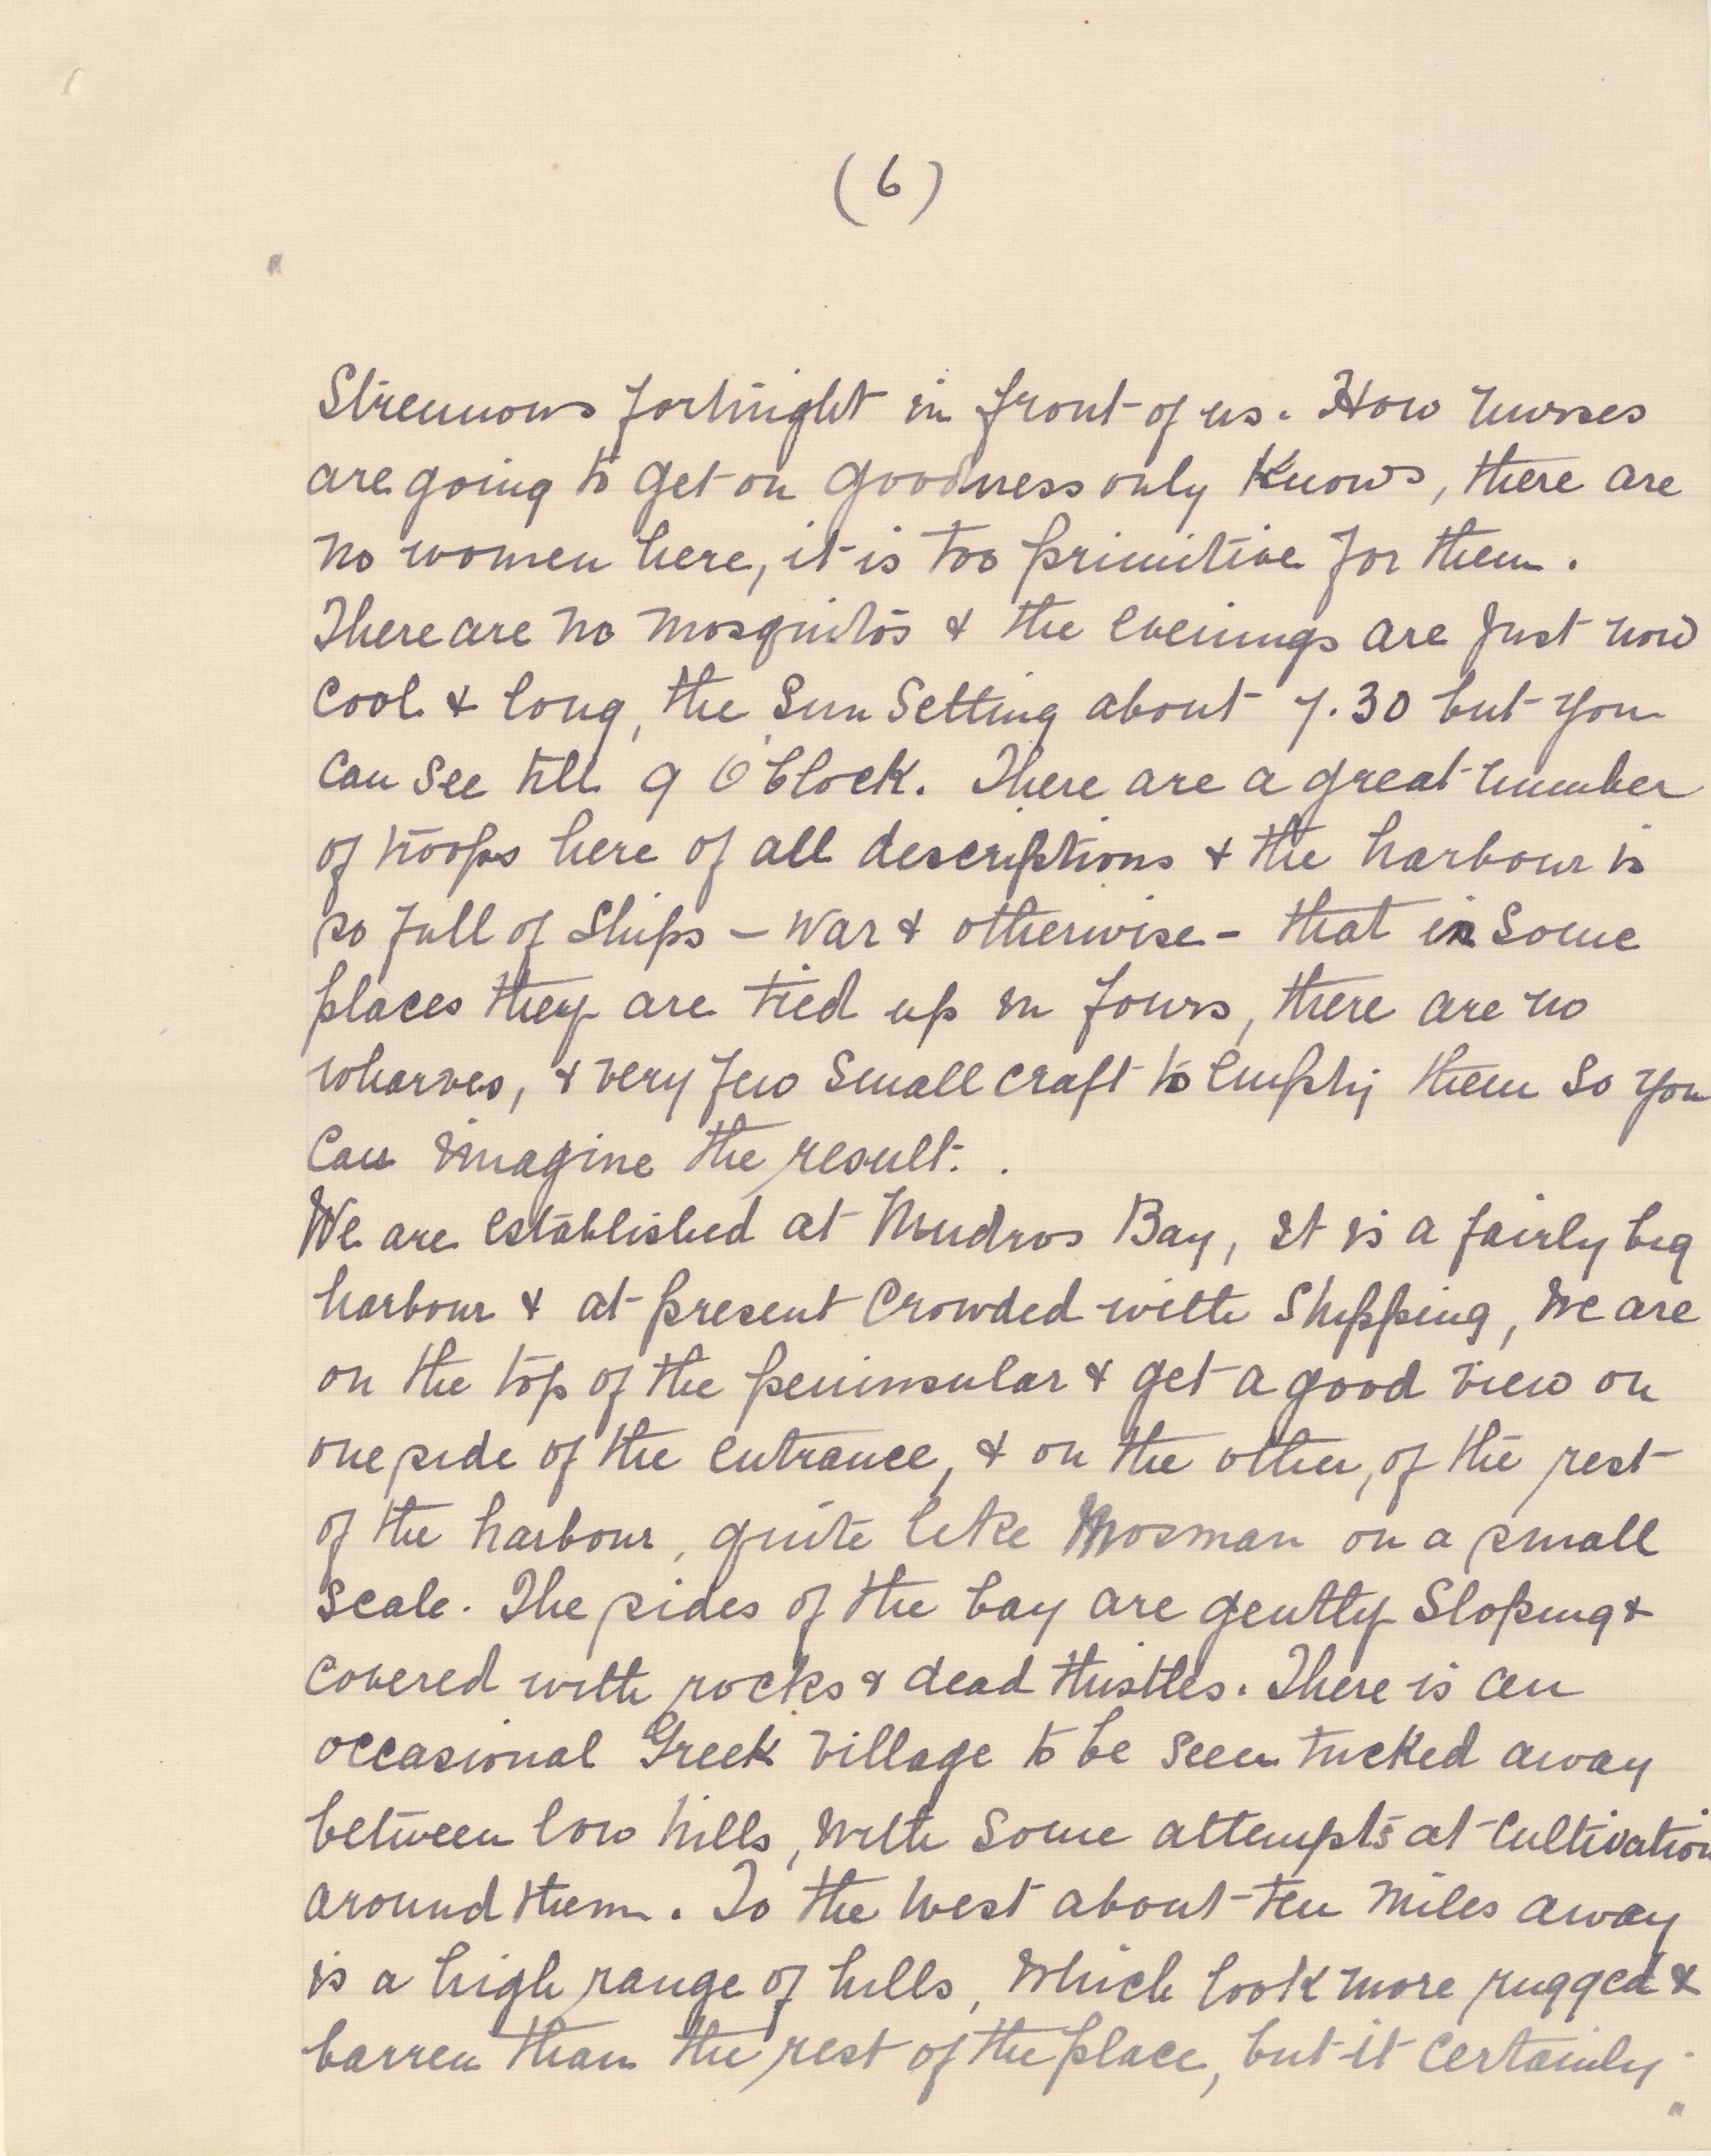 (6)
Strenuous fortnight in front of us. How nurses
are going to get on goodness only knows, there are
no women here, it is too primitive for them.
There are no mosquitos & the evenings are just now
cool & long, the sun setting about 7.30 but you
can see till 9 O'Clock. There are a great number
of troops here of all descriptions & the harbour is
so full of ships - war & otherwise - that in some
places they are tied up in fours, there are no
wharves, & very few small craft to empty them so you
can imagine the result.
We are established at Mudros Bay, it is a fairly big
harbour & at present crowded with shipping, we are
on the top of the peninsular & get a good view on
one side of the entrance, & on the other, of the rest
of the harbour, quite like Mosman on a small
scale. The sides of the bay are gently sloping &
covered with rocks & dead thistles. There is an
occasional Greek village to be seen tucked away
between low hills, with some attempts at cultivation
around them. To the West about ten miles away
is a high range of hills, which look more rugged &
barren than the rest of the place, but it certainly